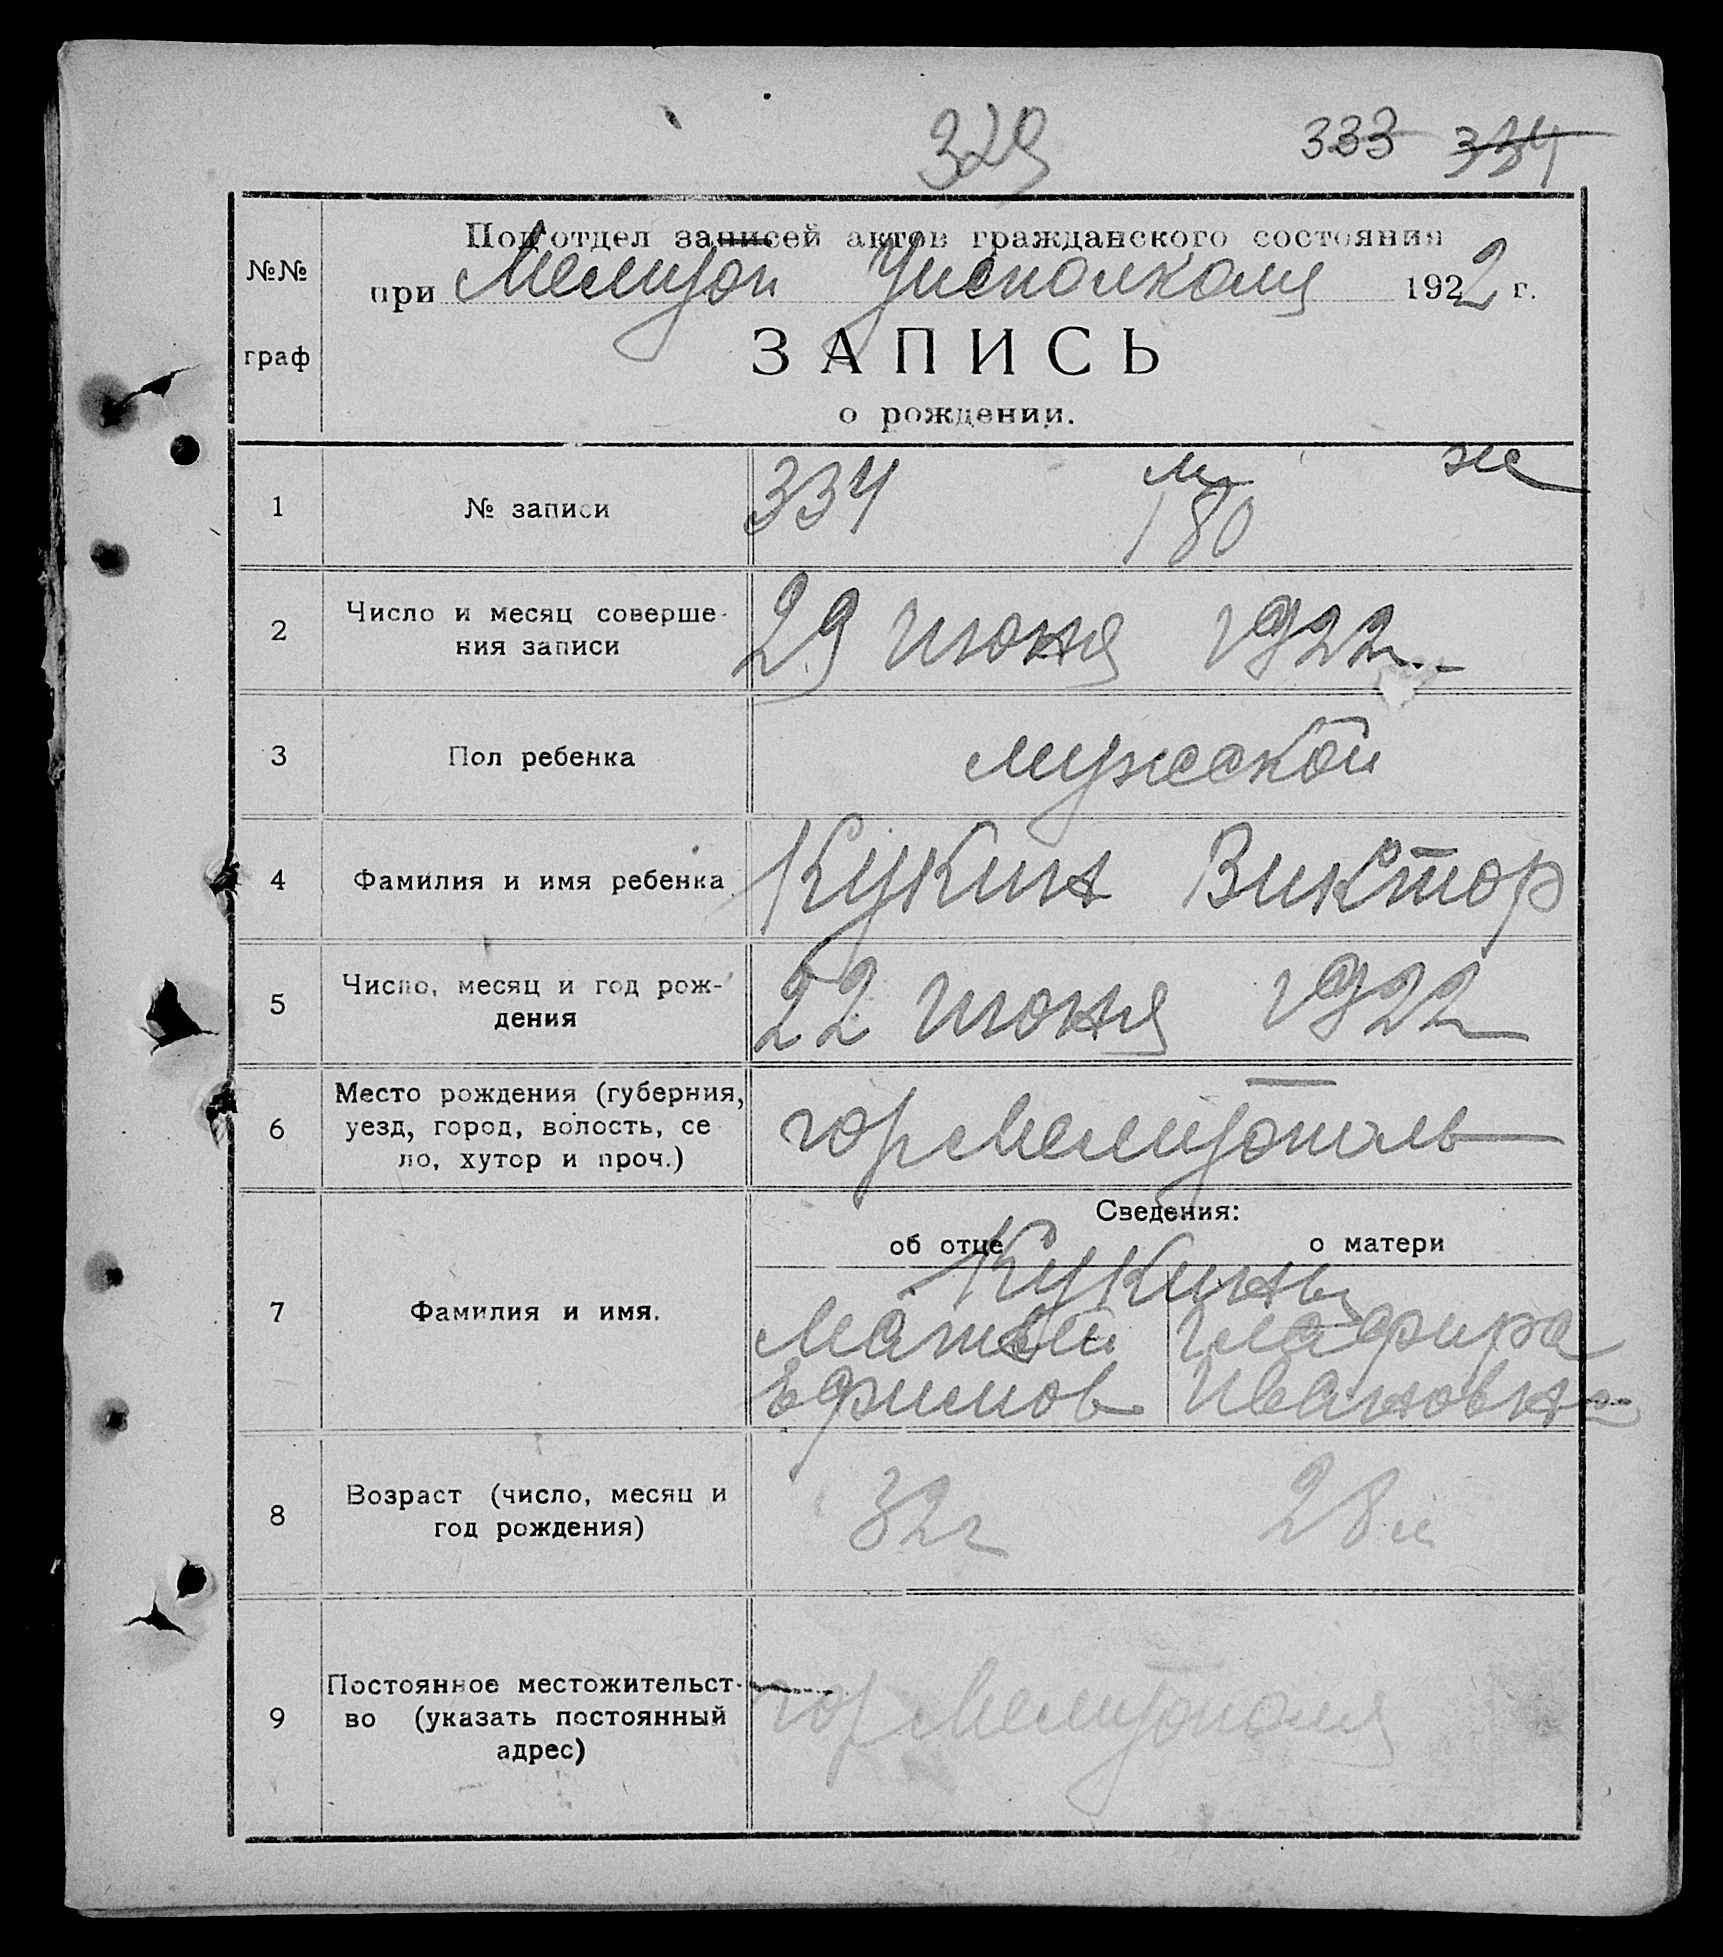 329 333 334
№№ граф
Подотдел записей актов гражданского состояния
при Мелитоп Уисполкома 1922 г.
ЗАПИСЬ
о рождении.
1 № записи 334 м 180 ж
2 Число и месяц соверше-
ния записи 29 июня 1922
3 Пол ребенка мужской
4 Фамилия и имя ребенка Кукин Виктор
5 Число, месяц и год рож-
дения 22 июня 1922
6 Место рождения (губерния,
уезд, город, волость, се
ло, хутор и проч.) гор Мелитополь
Сведения:
об отце о матери
7 Фамилия и имя. Кукины
Матвей Глафира
Ефимов Ивановна
8 Возраст (число, месяц и
год рождения) 32 г 28 л
9 Постоянное местожительст-
во (указать постоянный
адрес) гор Мелитополя